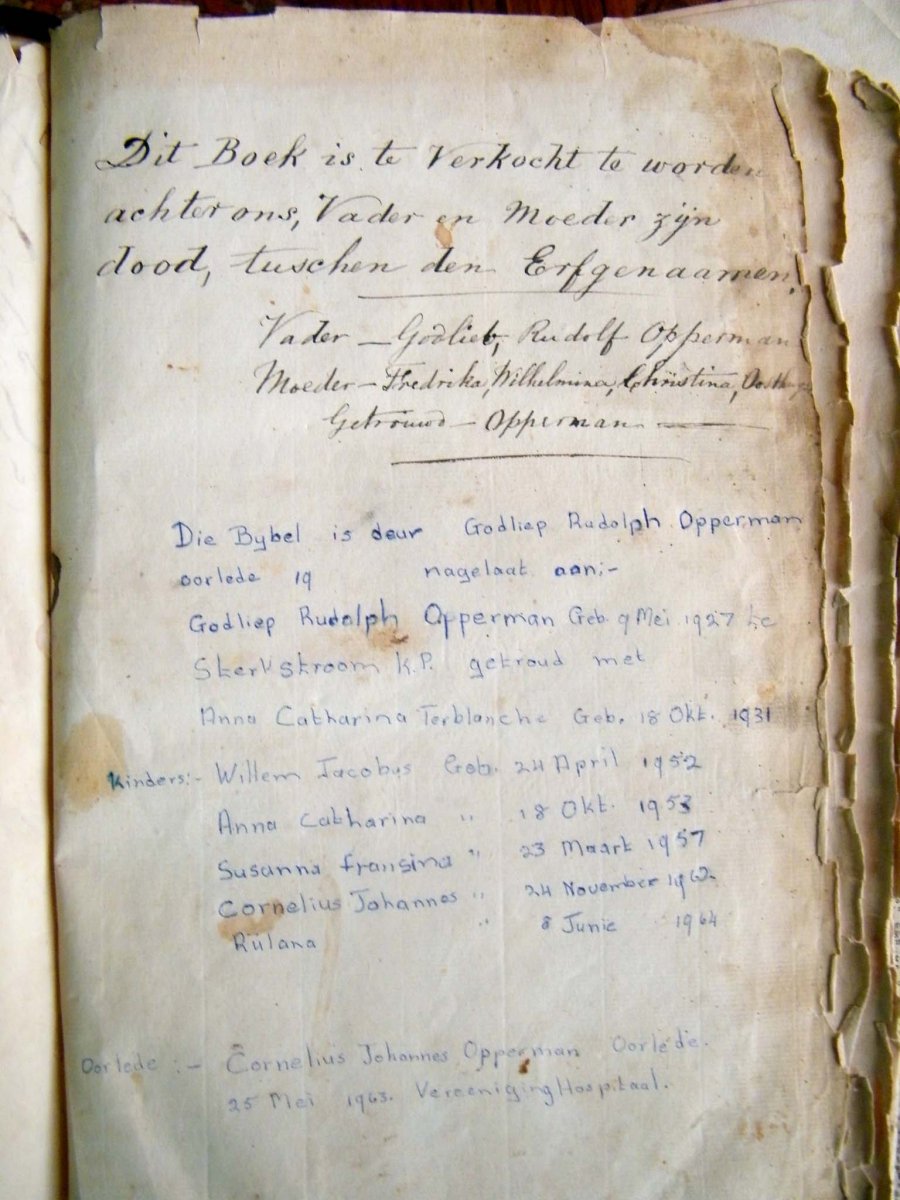 Dit Boek is te Verkocht te worden
achter ons, Vader en Moeder zijn
dood, tuschen den Erfgenaamen.
Vader — Godlieb, Rudolf Opperman
Moeder — Fredrika, Wilhelmina, Christina,
Getrouwd — Opperman —
Die Bybel is deur Godliep Rudolph Opperman
oorlede 19 nagelaat aan;-
Godliep Rudolph Opperman Geb. 9 Mei 1927 te
Sterkstroom K.P. getroud met
Anna Catharina Terblanche Geb. 18 Okt. 1931
Kinders:- Willem Jacobus Geb. 24 April 1952
Anna Catharina " 18 Okt. 1953
Susanna fransina " 23 Maart 1957
Cornelius Johannes " 24 November 1962
Rülana " 8 Junie 1964
Oorlede :- Cornelius Johannes Opperman Oorlede.
25 Mei 1963. Vereeniging Hospitaal.